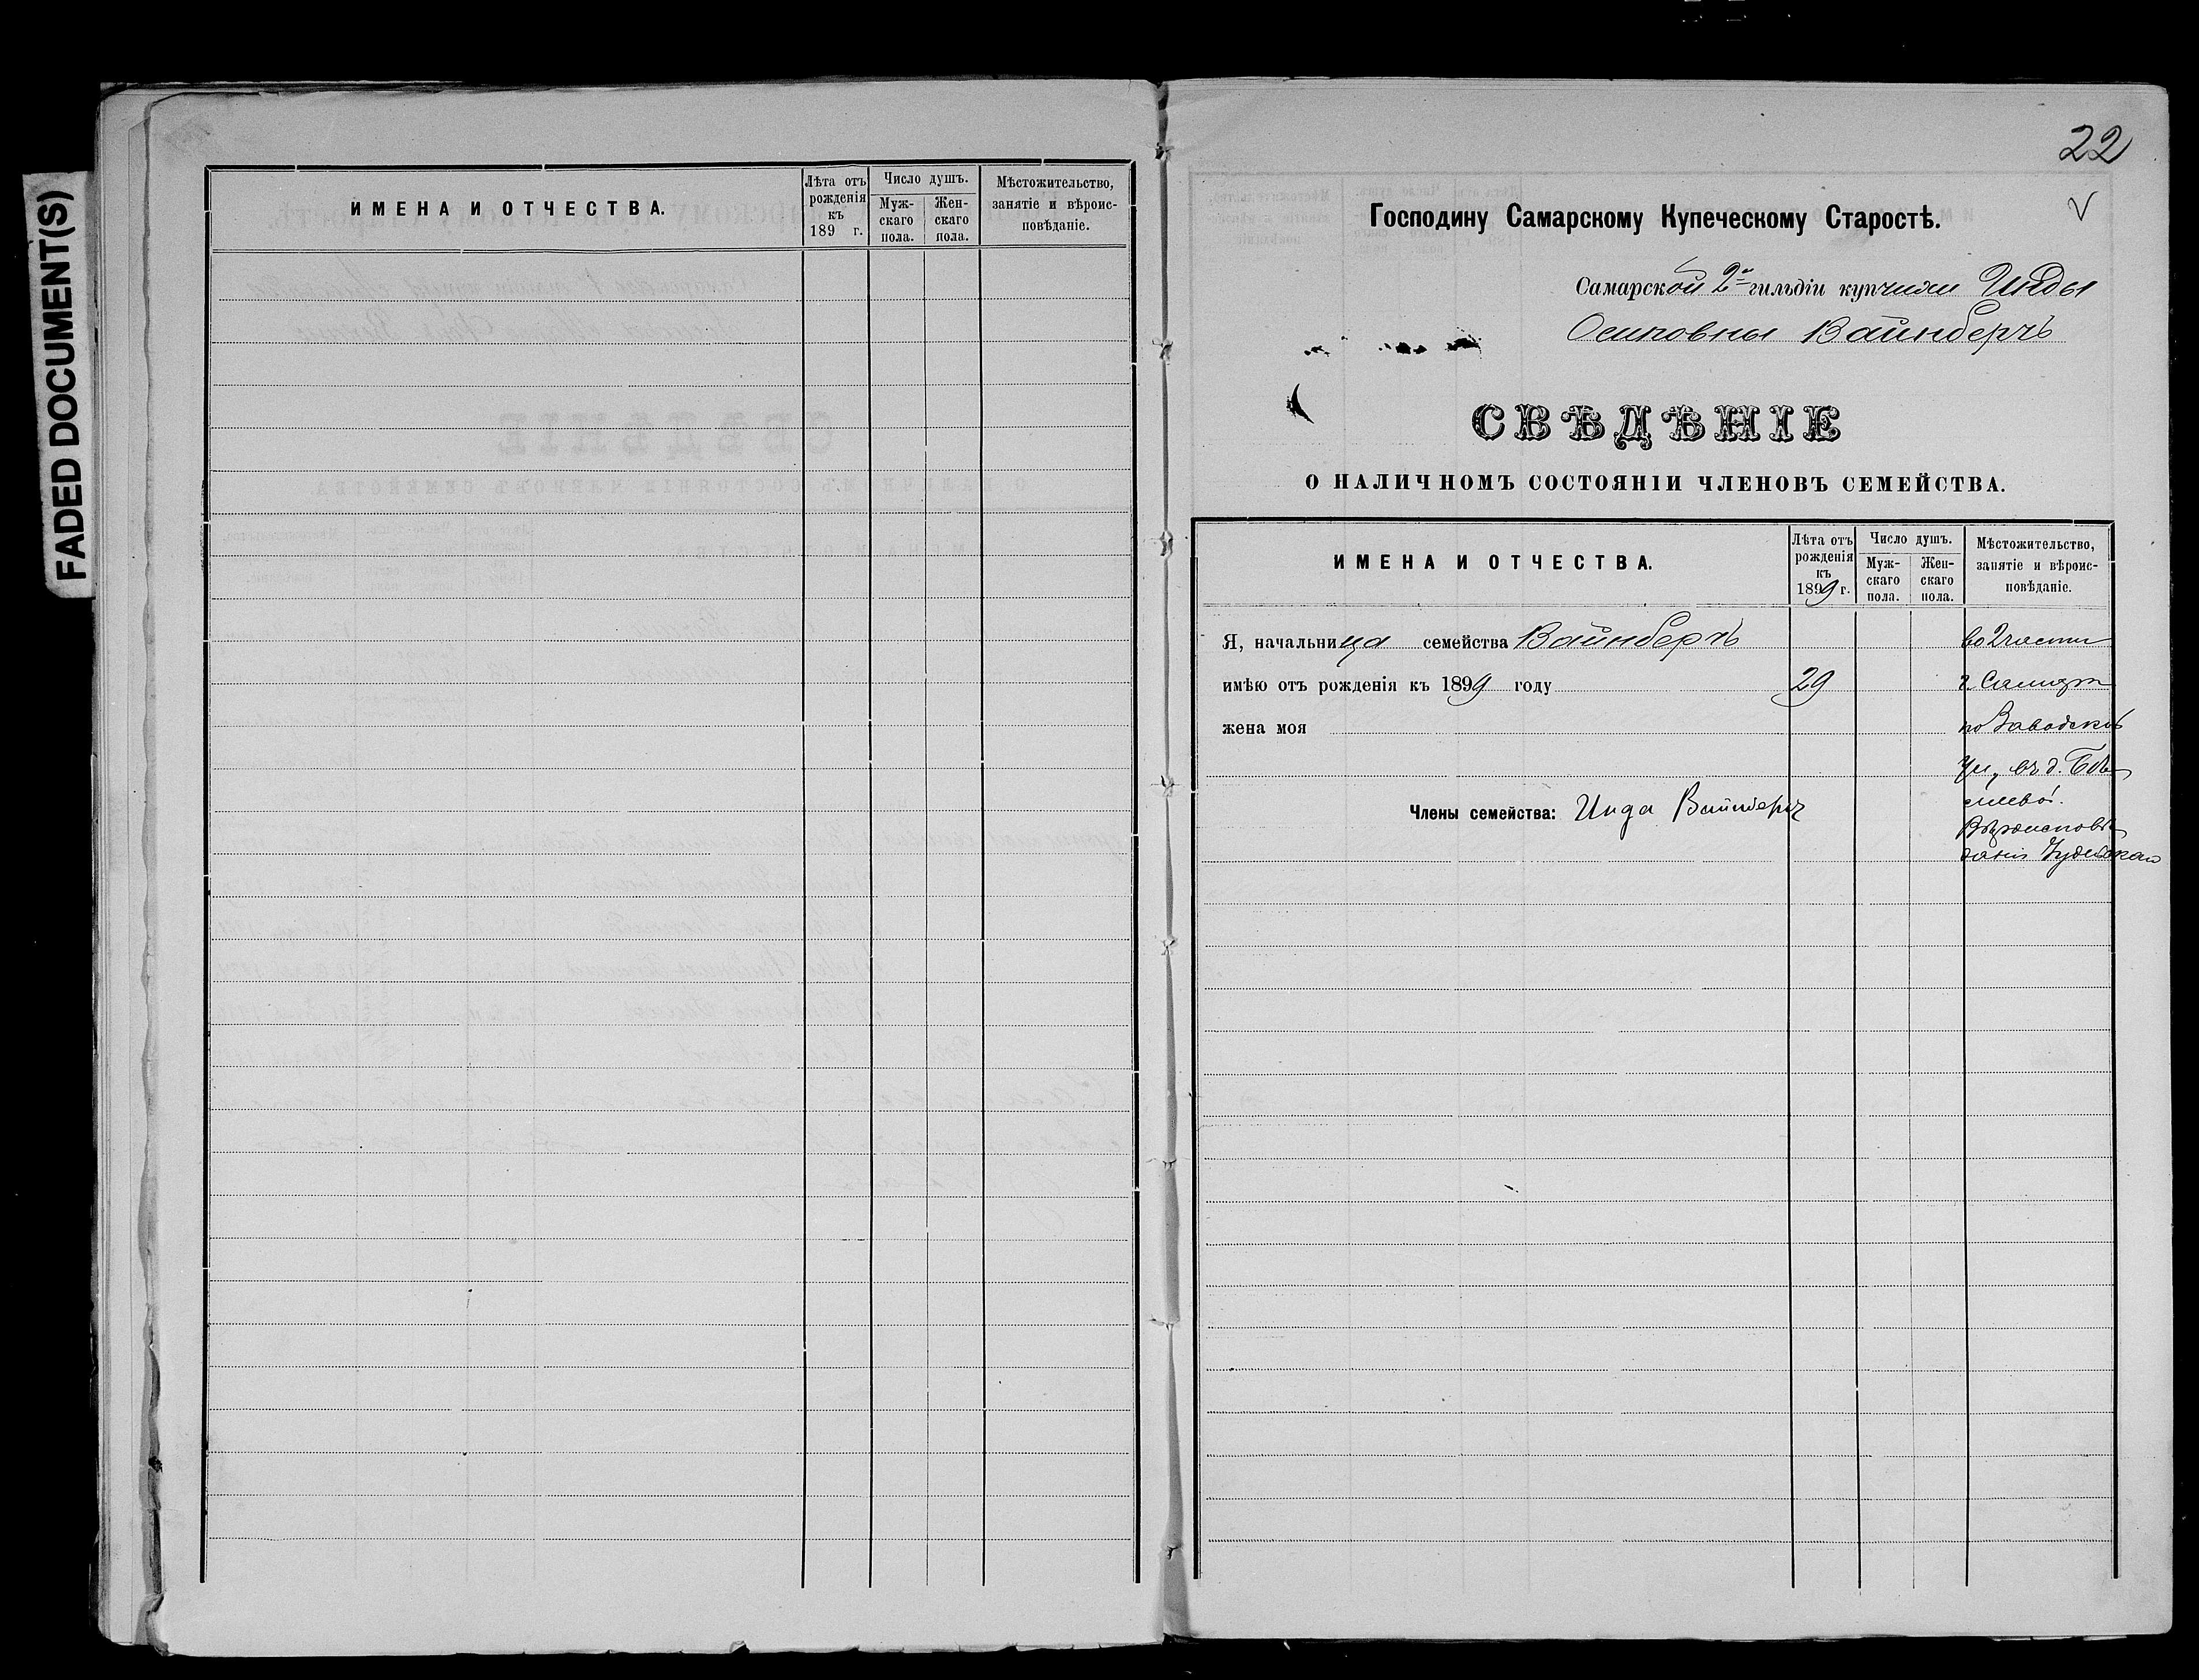 FADED DOCUMENT(S)
ИМЕНА И ОТЧЕСТВА.
Лѣта отъ рожденія къ 189 г.
Число душъ.
Мужскаго пола.
Женскаго пола.
Мѣстожительство, занятіе и вѣроисповѣданіе.
22
Господину Самарскому Купеческому Старостѣ.
Самарской 2й гильдіи купчихи Инды
Осиповны Вайнбергъ
СВѢДѢНІЕ
О НАЛИЧНОМЪ СОСТОЯНІИ ЧЛЕНОВЪ СЕМЕЙСТВА.
ИМЕНА И ОТЧЕСТВА.
Лѣта отъ
рожденія
къ
1899 г.
Число душъ.
Муж-
скаго
пола.
Жен-
скаго
пола.
Мѣстожительство,
занятіе и вѣроис-
повѣданіе.
Я, начальница семейства Вайнбергъ во 2 части
имѣю отъ рожденія къ 1899 году 29 г. Самары
жена моя по Заводской
ул, въ д.
Члены семейства: Инда Вайнбергъ
Вѣроисповѣ
данія Іудейскаго